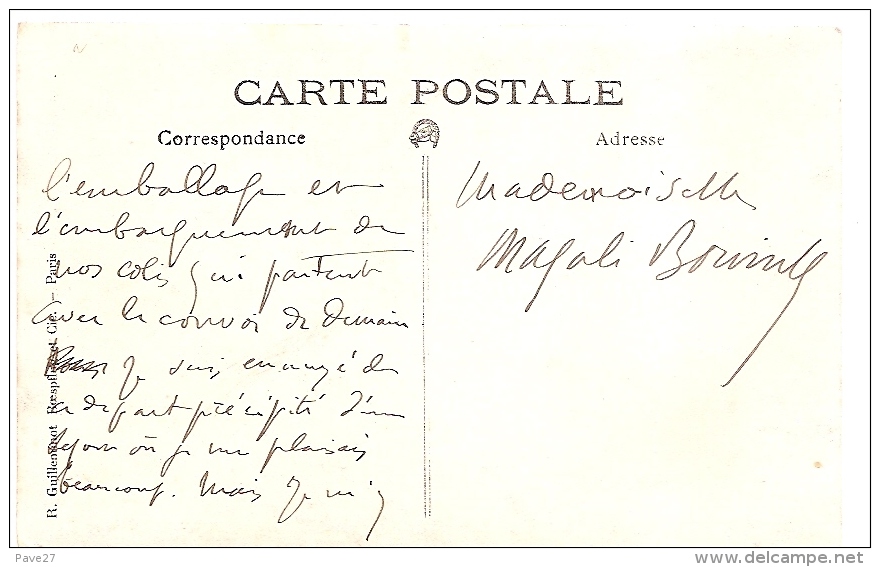 CARTE POSTALE
Correspondance
Adresse
l'emballage et
l'embarquement de
nos colis qui partent
avec le convoi de demain
je suis ennuyé de
ce départ précipité d'un
séjour où je me plaisais
beaucoup. Mais je m'y
Mademoiselle
Magali
R. Guilleminot Bœspflug et Cie. – Paris
Pave27
www.delcampe.net